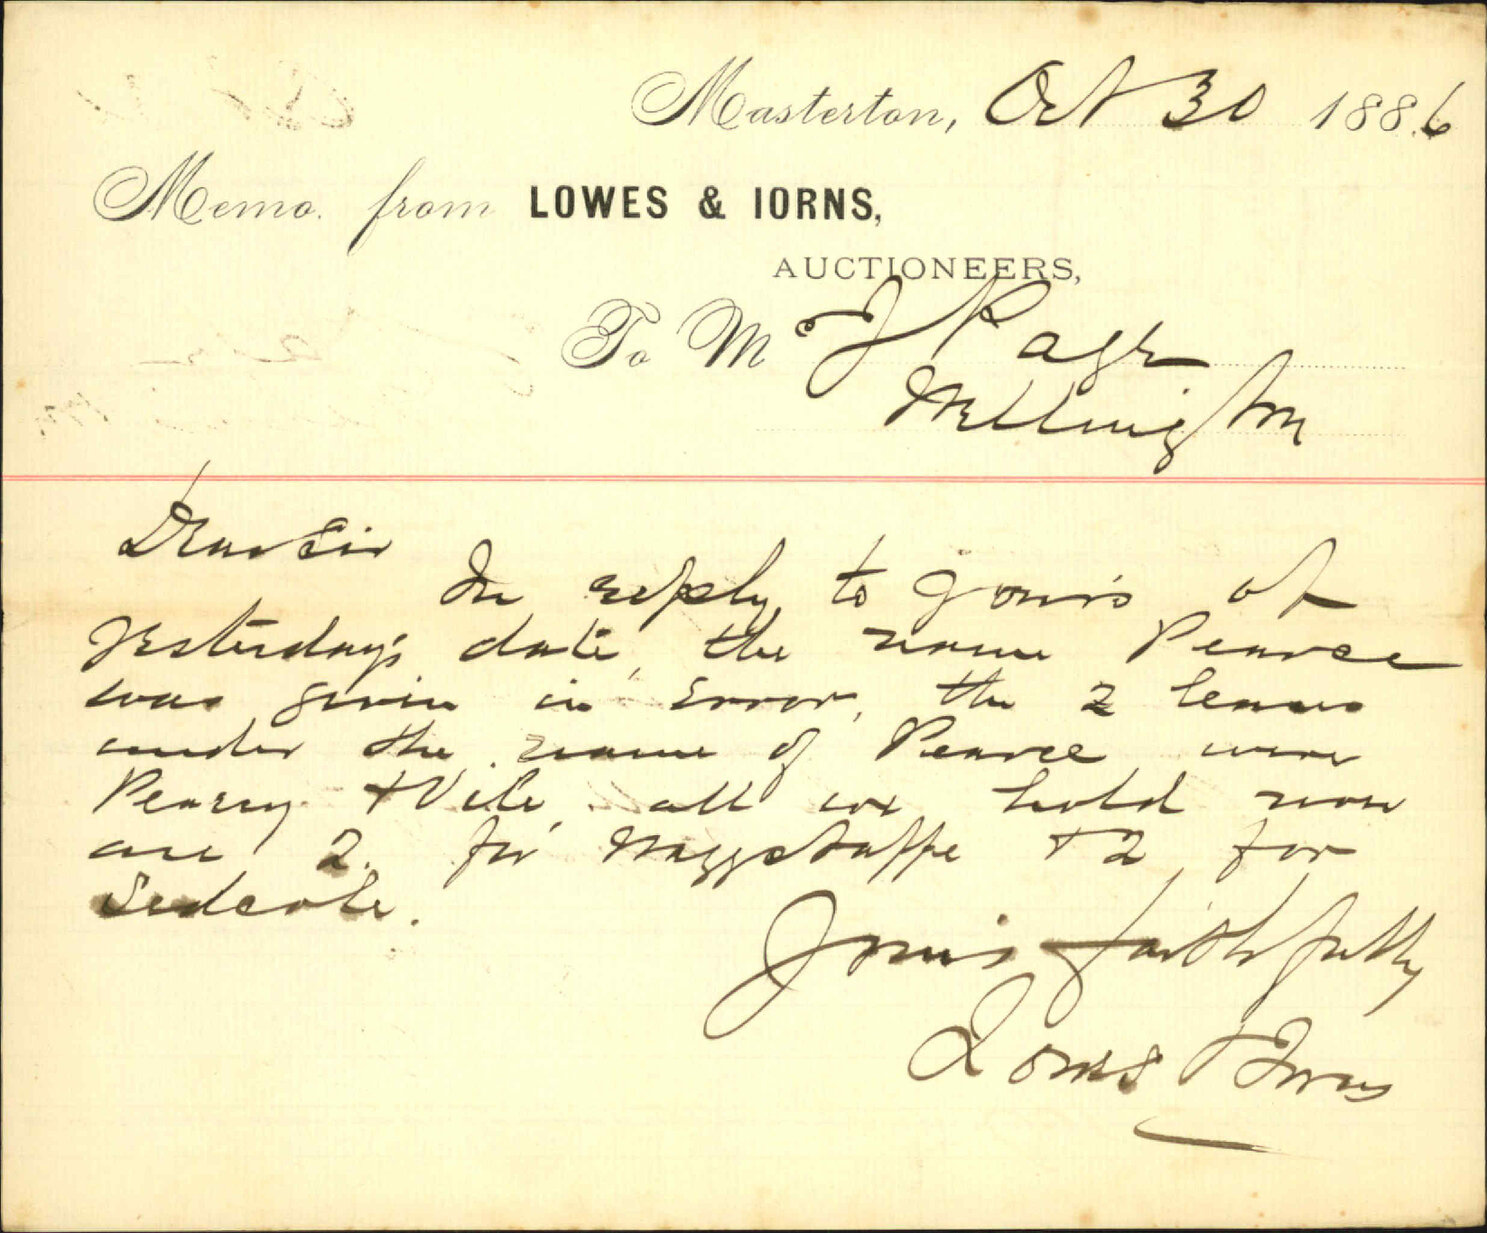 Masterton, Oct 30 1886
Memo. from LOWES & IORNS,
AUCTIONEERS,
To Mr J Page
Wellington
Dear Sir
In reply to yours of
yesterday's date, the name Pearce
was given in error, the 2 leases
under the name of Pearce were
Perry & Vile, all we hold now
are 2 for Waggstaffe & 2 for
Sedcole.
Yours faithfully
Lowes & Iorns